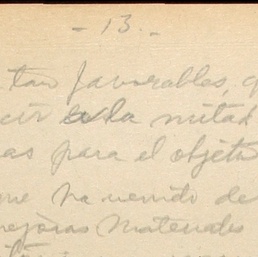 - 13. -
tan favorables, q
cir a la mitad
as para el objeto
me ha venido de
mejoras materiales